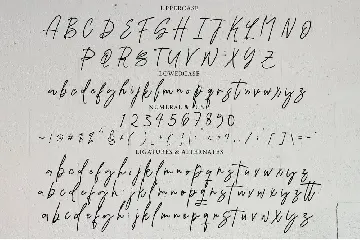 UPPERCASE
A B C D E F G H I J K L M N O
P Q R S T U V W X Y Z
LOWERCASE
a b c d e f g h i j k l m n o p q r s t u v w x y z
1 2 3 4 5 6 7 8 9 0
LIGATURES & ALTERNATES
a b c d e f g h i j k l m n o p q r s t u v w x y z
a b c d e f g h i j k l m n o p q r s t u v w x y z tt
a b c d e f g h i j k l m n o p q r s t u v w x y z